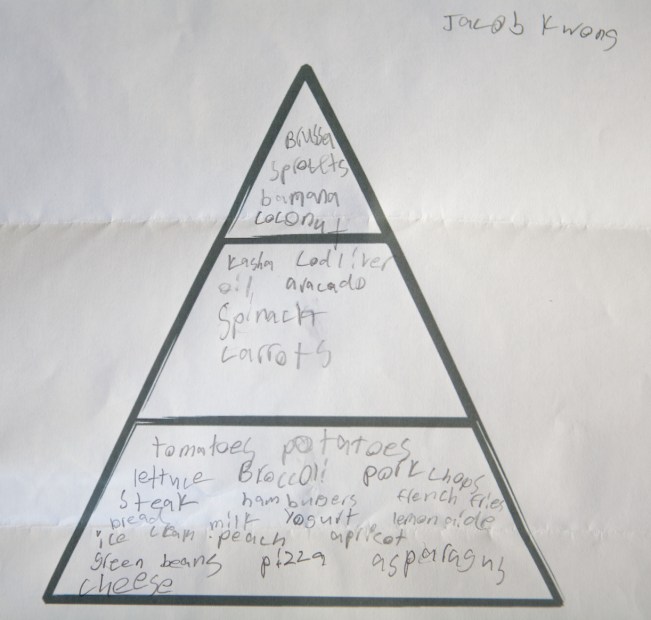 Jacob Kwong
Brussel
sprouts
bamana
coconut
kasha Codliver
oil avacado
Spinach
carrots
tomatoes potatoes
lettuce Broccoli porkchops
steak hamburgers french fries
bread milk Yogurt lemonaide
ice cream peach apricot
green beans pizza asparagus
cheese